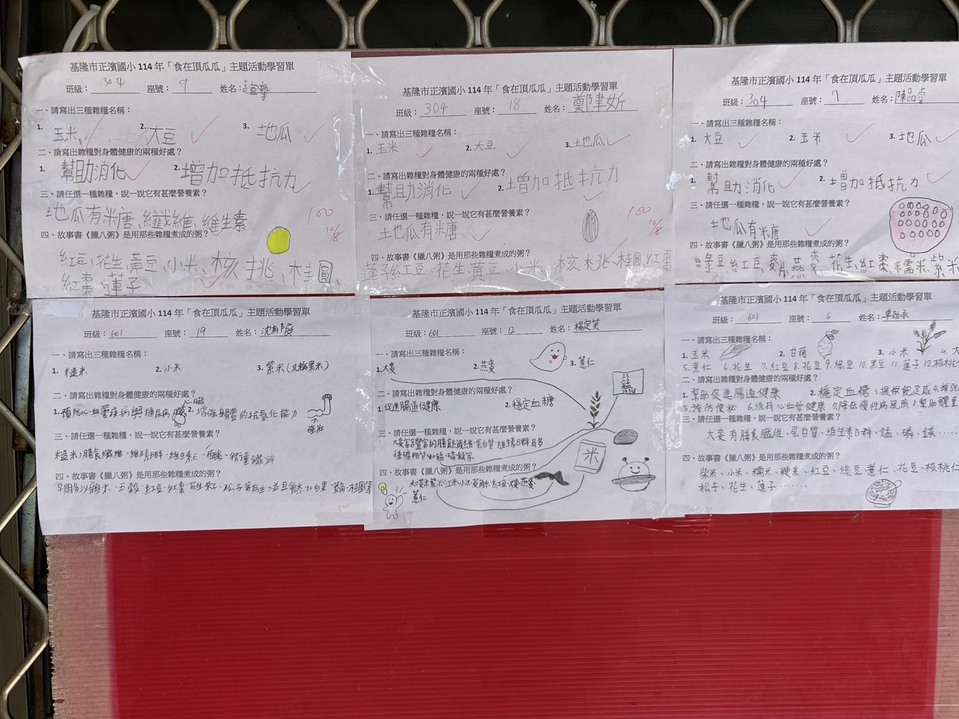 基隆市正濱國小 114 年「食在頂瓜瓜」主題活動學習單
班級：304 座號：9 姓名：
一、請寫出三種雜糧名稱：
1. 玉米 2. 大豆 3. 地瓜
二、請寫出雜糧對身體健康的兩種好處？
1. 幫助消化 2. 增加抵抗力
三、請任選一種雜糧，說一說它有甚麼營養素？
地瓜有米唐、纖纖維、維生素
100
10/8
四、故事書《臘八粥》是用那些雜糧煮成的粥？
紅豆、花生、黃豆、小米、核挑、桂圓、
紅棗、蓮子
基隆市正濱國小 114 年「食在頂瓜瓜」主題活動學習單
班級：304 座號：18 姓名：鄭建妡
一、請寫出三種雜糧名稱：
1. 玉米 2. 大豆 3. 土地瓜
二、請寫出雜糧對身體健康的兩種好處？
1. 幫助消化 2. 增加抵抗力
三、請任選一種雜糧，說一說它有甚麼營養素？
土地瓜有米唐、
100
10/8
四、故事書《臘八粥》是用那些雜糧煮成的粥？
蓮子紅豆、花生、黃豆、小米、核桃、桂圓、紅棗
基隆市正濱國小 114 年「食在頂瓜瓜」主題活動學習單
班級：304 座號：7 姓名：陳品
一、請寫出三種雜糧名稱：
1. 大豆 2. 玉米 3. 地瓜
二、請寫出雜糧對身體健康的兩種好處？
1. 幫助消化 2. 增加抵抗力
三、請任選一種雜糧，說一說它有甚麼營養素？
土地瓜有米唐
四、故事書《臘八粥》是用那些雜糧煮成的粥？
綠豆、紅豆、燕麥、花生、紅棗、糯米、紫米
基隆市正濱國小 114 年「食在頂瓜瓜」主題活動學習單
班級：601 座號：19 姓名：沈
一、請寫出三種雜糧名稱：
1. 糙米 2. 小米 3. 紫米(又稱黑米)
二、請寫出雜糧對身體健康的兩種好處？
1. 預防心血管疾病與糖尿病 2. 增強身體的抗氧化能力
三、請任選一種雜糧，說一說它有甚麼營養素？
糙米：膳食纖維、維生素
四、故事書《臘八粥》是用那些雜糧煮成的粥？
基隆市正濱國小 114 年「食在頂瓜瓜」主題活動學習單
班級：601 座號：12 姓名：楊定
一、請寫出三種雜糧名稱：
1. 大麥 2. 燕麥 3. 薏仁
二、請寫出雜糧對身體健康的兩種好處？
1. 促進腸道健康 2. 穩定血糖
三、請任選一種雜糧，說一說它有甚麼營養素？
米
四、故事書《臘八粥》是用那些雜糧煮成的粥？
薏仁
基隆市正濱國小 114 年「食在頂瓜瓜」主題活動學習單
班級：601 座號：6 姓名：
一、請寫出三種雜糧名稱：
1. 玉米 2. 甘藷 3. 小米 4. 大
5. 薏仁 6. 花生 7. 紅豆 8. 花豆 9. 綠豆 10. 黑豆 11. 蓮子 12. 核桃
二、請寫出雜糧對身體健康的兩種好處？
1. 幫助促進腸道健康 2. 穩定血糖 3. 提供飽足感 4.
5. 預防便祕 6. 維持心血管健康 7. 降低慢性病風險 8.
三、請任選一種雜糧，說一說它有甚麼營養素？
大麥有膳食纖維、蛋白質、維生素B群、錳、磷、鎂……
四、故事書《臘八粥》是用那些雜糧煮成的粥？
紫米、小米、糯米、粳米、紅豆、綠豆、薏仁、花豆、核桃仁
松子、花生、蓮子……